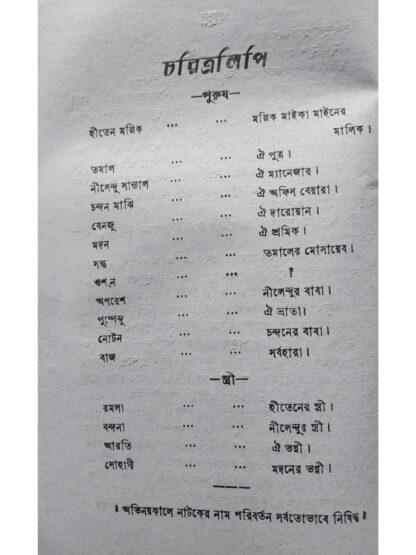 চরিত্রলিপি
—পুরুষ—
হীতেন মল্লিক ... ... মল্লিক মাইকা মাইনের
মালিক।
তমাল ... ... ঐ পুত্র।
নীলেন্দু সান্যাল ... ... ঐ ম্যানেজার।
চন্দন মাঝি ... ... ঐ অফিস বেয়ারা।
বেনজু ... ... ঐ দারোয়ান।
মদন ... ... ঐ শ্রমিক।
সন্তু ... ... তমালের মোসায়েব।
গুপ্তন ... ... ?
অপরেশ ... ... নীলেন্দুর বাবা।
পুষ্পেন্দু ... ... ঐ ভ্রাতা।
নোটন ... ... চন্দনের বাবা।
বাজ ... ... সর্বহারা।
—স্ত্রী—
রমলা ... ... হীতেনের স্ত্রী।
বন্দনা ... ... নীলেন্দুর স্ত্রী।
আরতি ... ... ঐ ভগ্নী।
সোহাগী ... ... মদনের ভগ্নী।
॥ অভিনয়কালে নাটকের নাম পরিবর্তন সর্বতোভাবে নিষিদ্ধ ॥